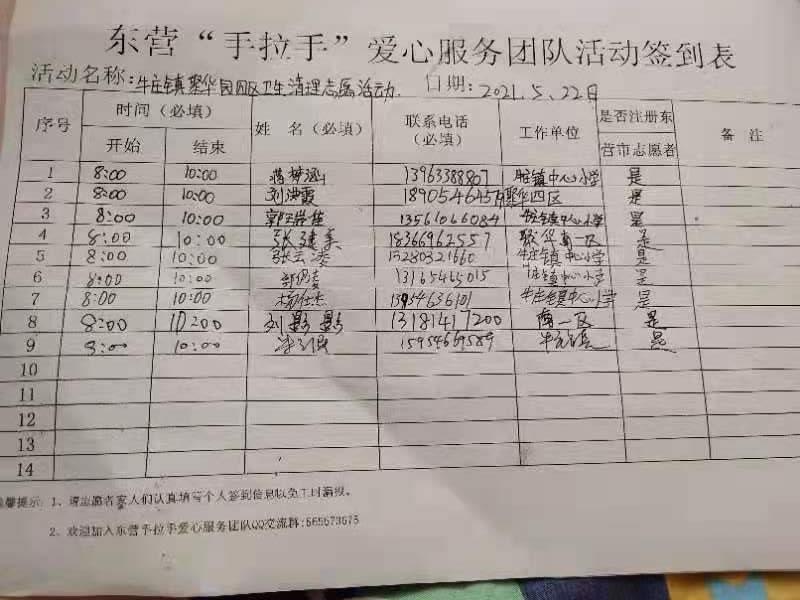 东营“手拉手”爱心服务团队活动签到表
活动名称:牛庄镇聚华园四区卫生清理志愿活动. 日期:2021.5.22日
序号 时间（必填） 姓 名（必填） 联系电话（必填） 工作单位 是否注册东营市志愿者 备 注
开始 结束
1 8:00 10:00 13963388807 中心小学 是
2 8:00 10:00 刘洪霞 聚华四区 是
3 8:00 10:00 13561066084 牛庄镇中心小学 是
4 8:00 10:00 18366962557 聚华南一区 是
5 8:00 10:00 张云凌 15280321660 牛庄镇中心小学 是
6 8:00 10:00 13165465015 牛庄镇中心小学 是
7 8:00 10:00 杨仕杰 牛庄镇中心小学 是
8 8:00 10:00 刘影影 13181417200 南一区 是
9 8:00 10:00 15954669589 牛庄镇 是
10
11
12
13
14
温馨提示: 1、请志愿者家人们认真填写个人签到信息以免工时漏报。
2、欢迎加入东营手拉手爱心服务团队QQ交流群: